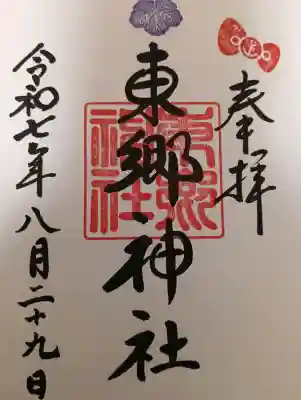 奉拝
東郷神社
東郷神社
令和七年八月二十九日